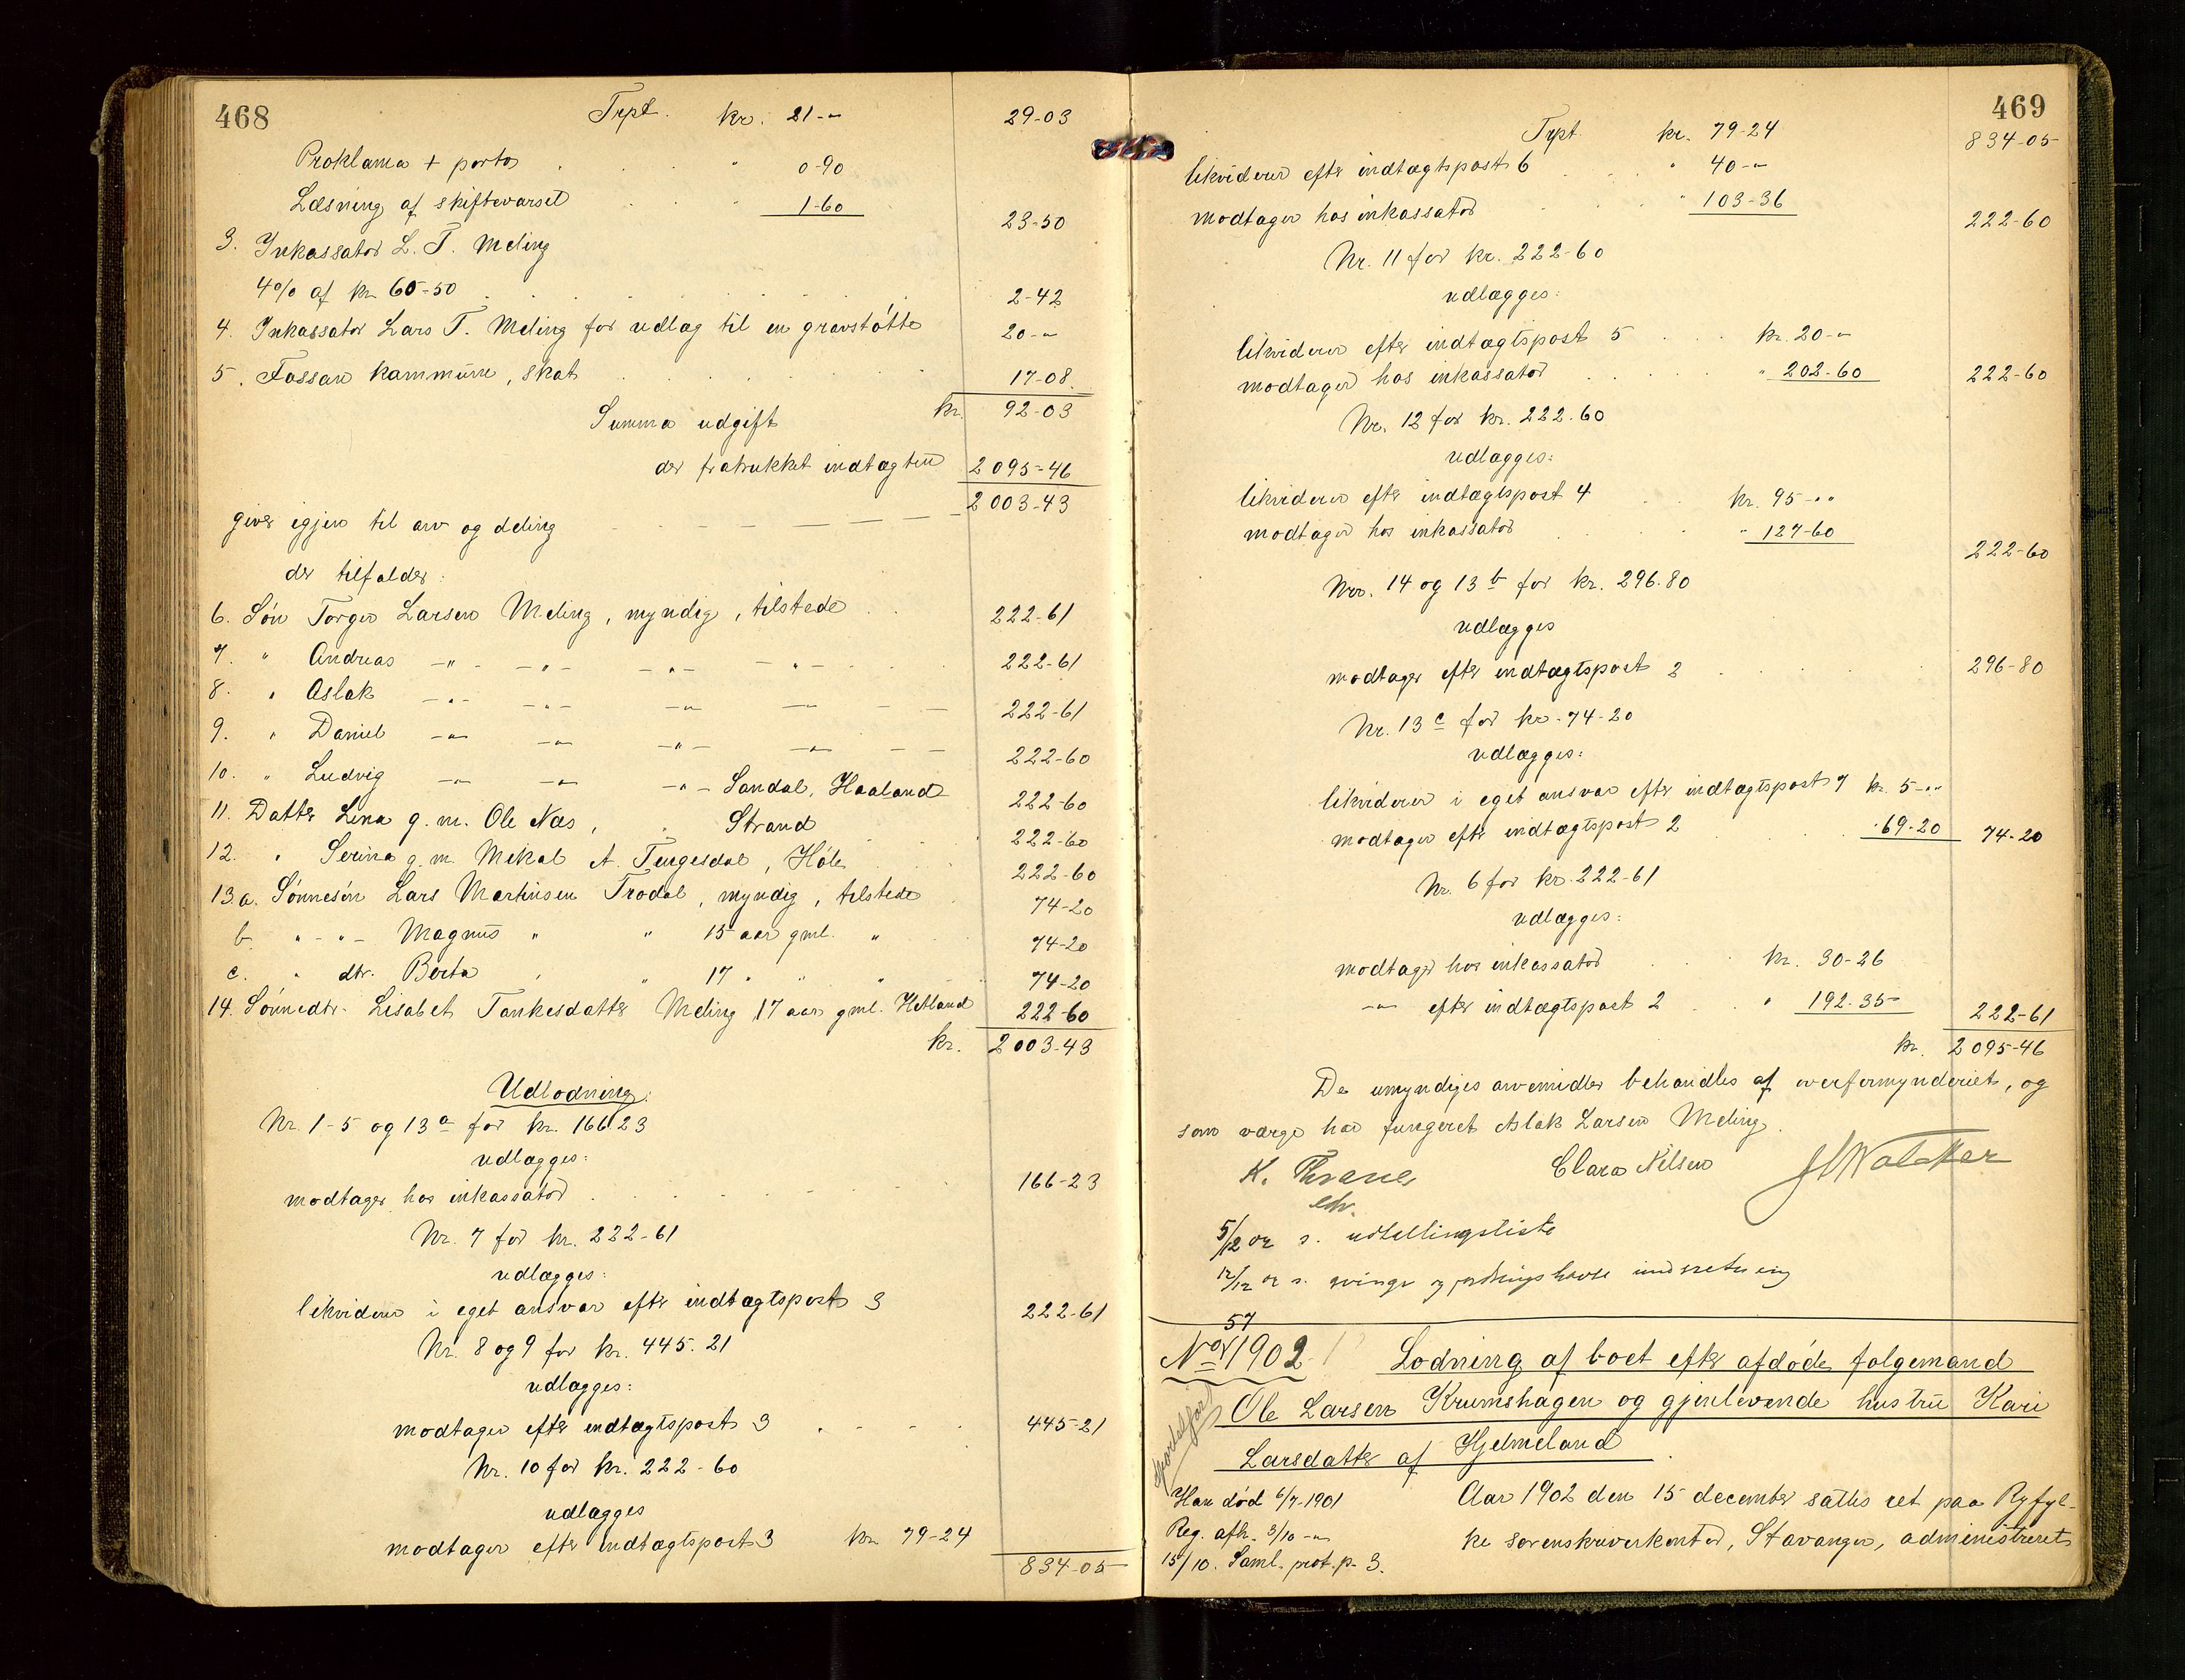 468
Trpt. kr. 21-" 29-03
Proklama + porto " 0-90
Læsning af skiftevarsel " 1-60 23-50
3. Inkassator L. T. Meling
4% af kr 60-50 2-42
4. Inkassator Lars T. Meling for udlæg til en gravstøtte 20-"
5. Fossan kommune, skat 17-08
Summa udgift kr. 92-03
der fratrukket indtægten 2095-46
giver igjen til arv og deling 2003-43
der tilfalder:
6. Søn Torger Larsen Meling, myndig, tilstede 222-61
7. " Andreas -"- -"- -"- -"- 222-61
8. " Aslak -"- -"- -"- -"- 222-61
9. " Daniel -"- -"- -"- -"- 222-60
10. " Ludvig -"- -"- -"- Sandal, Haaland 222-60
11. Datter Lina g. m. Ole Næs, Strand 222-60
12. " Serina g. m. Mikal A. Tengesdal, Høle 222-60
13.a. Sønnesøn Lars Martinsen Frodal, myndig, tilstede 74-20
b. " - " - Magnus " " 15 aar gml. " 74-20
c. " dtr. Berta " " 17 " " " 74-20
14. Sønnedtr. Lisabet Tankesdatter Meling 17 aar gml. Hetland 222-60
kr. 2003-43
Udlodning:
Nr. 1-5 og 13a for kr. 166.23
udlægges:
modtager hos inkassator 166-23
Nr. 7 for kr. 222-61
udlægges:
likviderer i eget ansvar efter indtægtspost 3 222-61
Nr. 8 og 9 for kr. 445.21
udlægges:
modtager efter indtægtspost 3 445-21
Nr. 10 for kr. 222-60
udlægges
modtager efter indtægtspost 3 kr 79-24
834-05
469
Trpt kr. 79-24 834-05
likviderer efter indtægtspost 6 " 40-"
modtager hos inkassator " 103-36 222-60
Nr. 11 for kr. 222-60
udlægges:
likviderer efter indtægtspost 5 kr. 20-"
modtager hos inkassator " 202-60 222-60
Nr. 12 for kr. 222.60
udlægges:
likviderer efter indtægtspost 4 kr. 95-"
modtager hos inkassator " 127-60 222-60
Nrr. 14 og 13b for kr. 296.80
udlægges
modtager efter indtægtspost 2 296-80
Nr. 13c for kr. 74-20
udlægges:
likviderer i eget ansvar efter indtægtspost 7 kr. 5-"
modtager efter indtægtspost 2 " 69-20 74-20
Nr. 6 for kr. 222-61
udlægges:
modtager hos inkassator kr. 30-26
-"- efter indtægtspost 2 " 192.35 222-61
kr. 2095-46
De umyndiges arvemidler behandles af overformynderiet, og
som værge har fungeret Aslak Larsen Meling.
K. Thrane Clara Nilsen
edv.
5/12 02 s. udtellingsliste
12/12 02 s.
57
No 1902. Lodning af boet efter afdøde folgemand
Ole Larsen Krumshagen og gjenlevende hustru Kari
Larsdatter af Hjelmeland.
Han død 6/7-1901
Reg. afh. 3/10 -"-
15/10. Saml. prot. p. 3.
Aar 1902 den 15 december sattes ret paa Ryfyl-
ke sorenskriverkontor, Stavanger, administreret